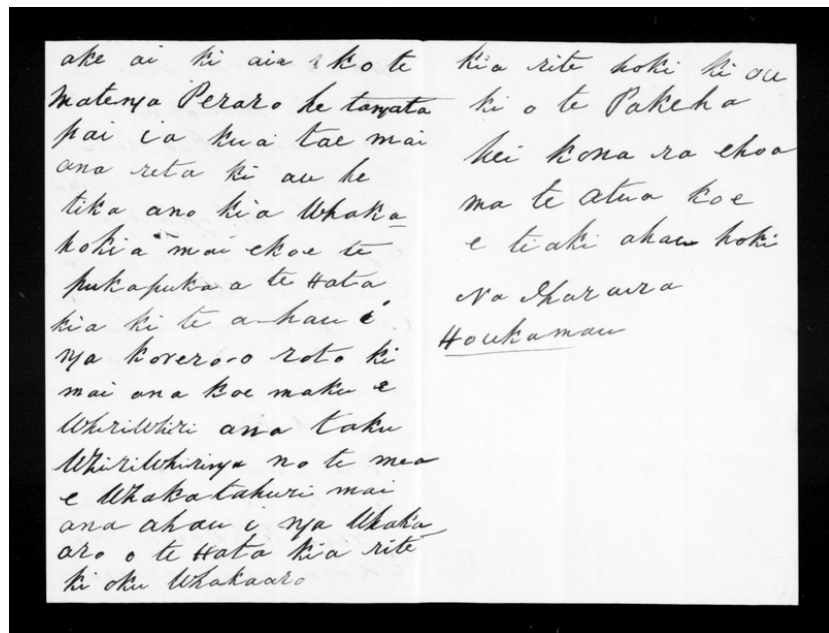 ake ai ki aia ko te
Matenga Peraro he tangata
pai ia kua tae mai
ana reta ki au he
tika ano kia Whaka
hokia mai ekoe te
pukapuka a te Hata
kia ki te a-hau i
nga korero-o roto ki
mai ana koe maku e
Whiriwhiri ana taku
Whiriwhiringa no te mea
e Whakatahuri mai
ana ahau i nga Whaka
aro o te Hata kia rite
ki oku Whakaaro
kia rite hoki ki ou
ki o te Pakeha
hei kona ra ehoa
ma te atua koe
e tiaki ahau hoki
Na Iharaira
Houkamau